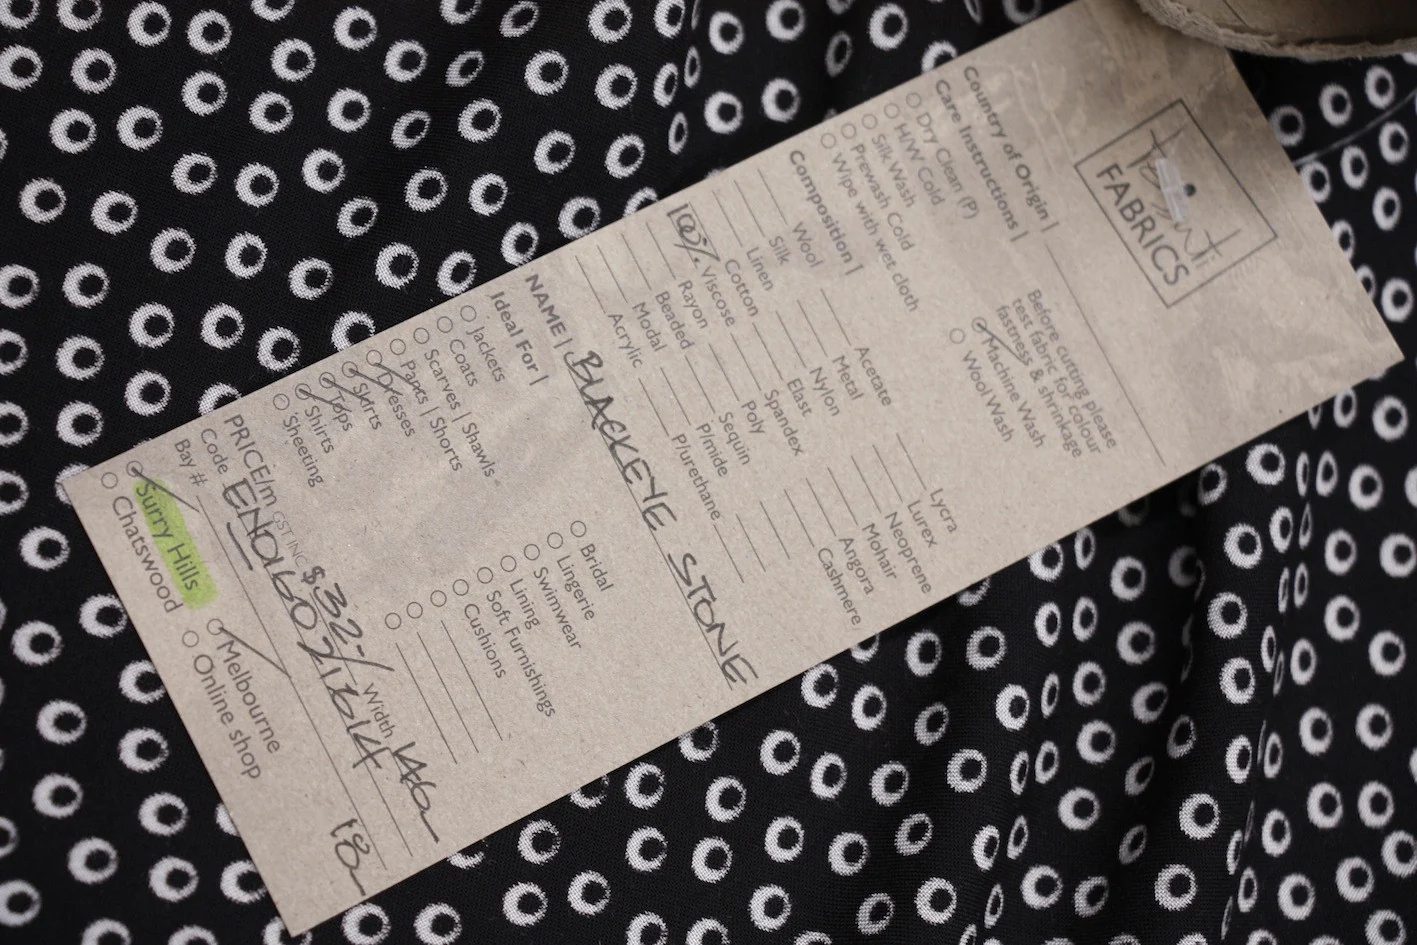 Tessuti
FABRICS
Country of Origin |
Care Instructions |
Before cutting please
test fabric for colour
fastness & shrinkage
Dry Clean (P)
Machine Wash
H/W Cold
Wool Wash
Silk Wash
Prewash Cold
Wipe with wet cloth
Composition |
Wool Acetate Lycra
Silk Metal Lurex
Linen Nylon Neoprene
Cotton Elast Mohair
100% Viscose Spandex Angora
Rayon Poly Cashmere
Beaded Sequin
Modal P/mide
Acrylic P/urethane
NAME | BLACKEYE STONE
Ideal For |
Jackets Bridal
Coats Lingerie
Scarves | Shawls Swimwear
Pants | Shorts Lining
Dresses Soft Furnishings
Skirts Cushions
Tops
Shirts
Sheeting
PRICE/m GST INC $32-/ Width
Code
Bay #
Surry Hills Melbourne
Chatswood Online shop